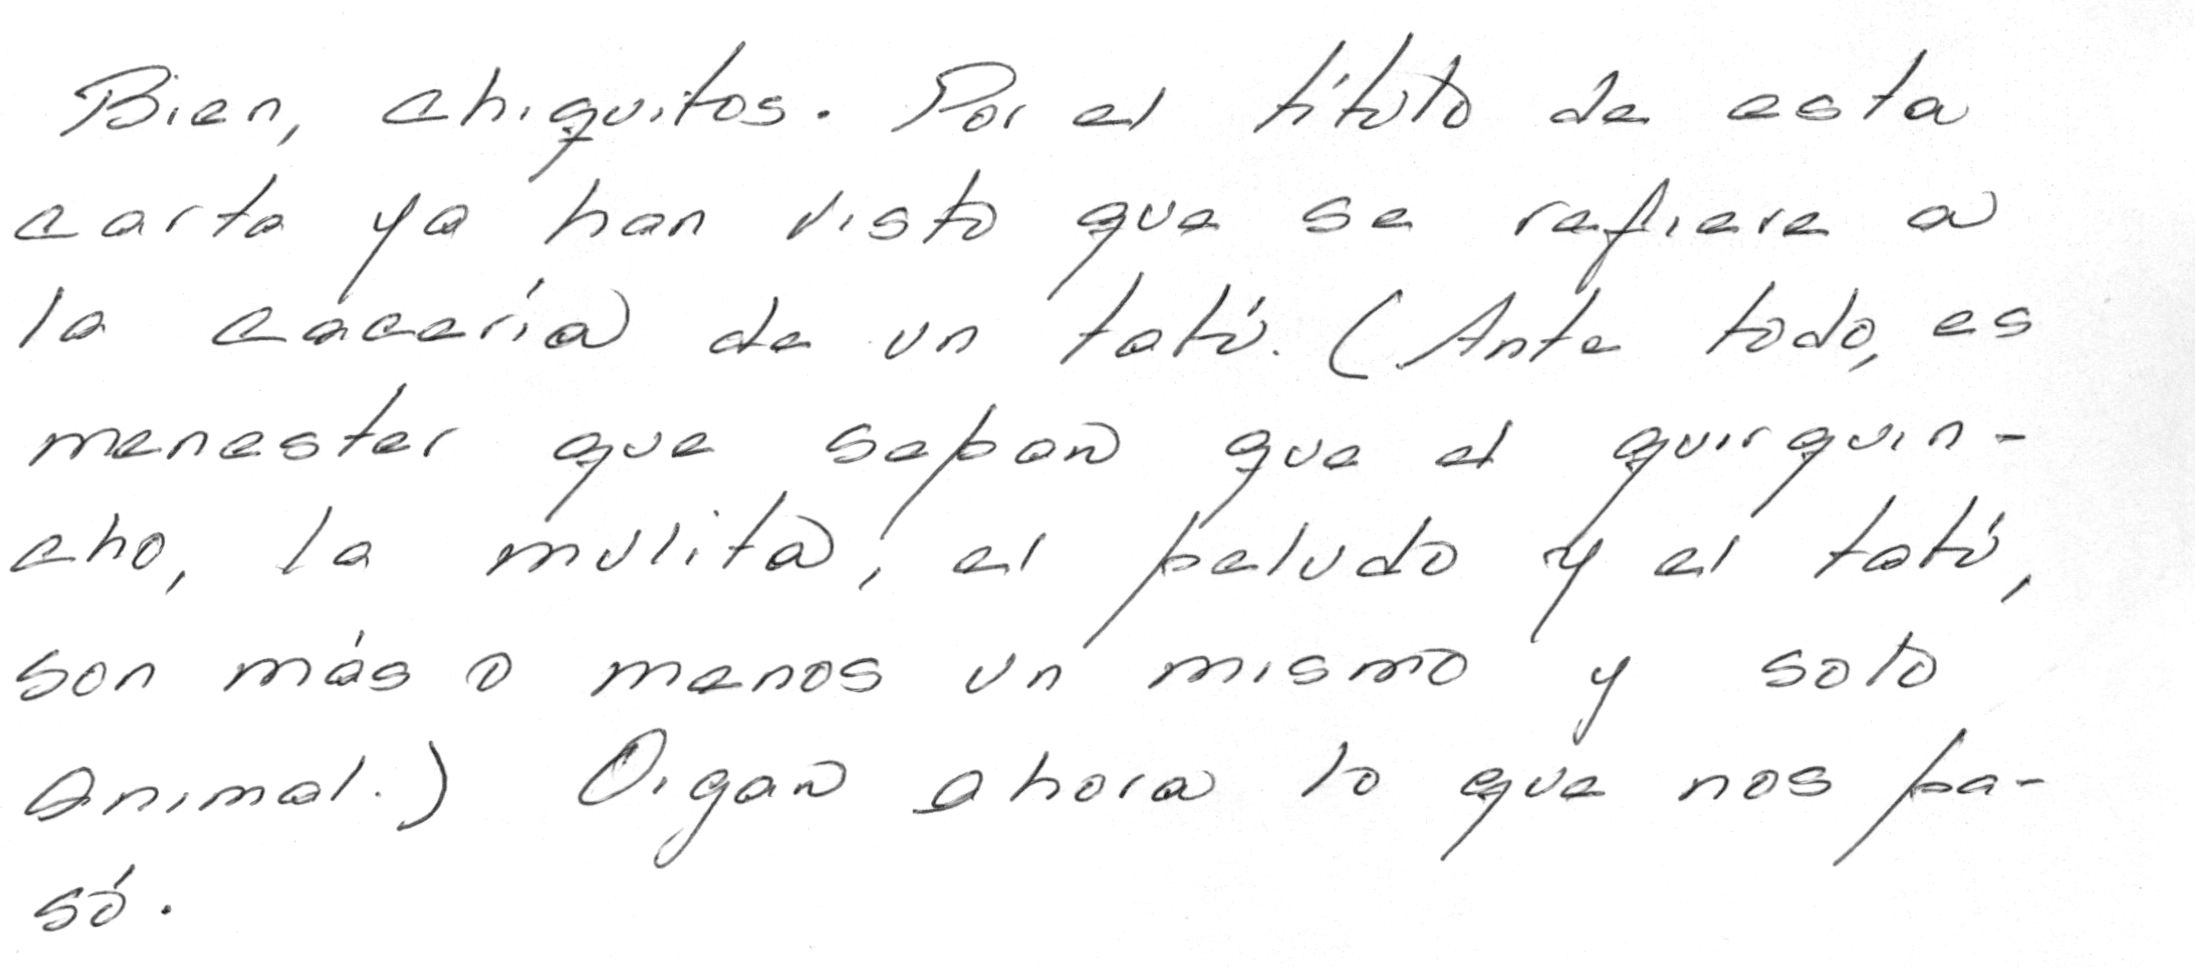 Bien, chiquitos. Por el título de esta
carta ya han visto que se refiere a
la cacería de un tatú. (Ante todo, es
menester que sepan que el quirquin-
cho, la mulita, el peludo y el tatú,
son más o menos un mismo y solo
animal.) Oigan ahora lo que nos pa-
só.